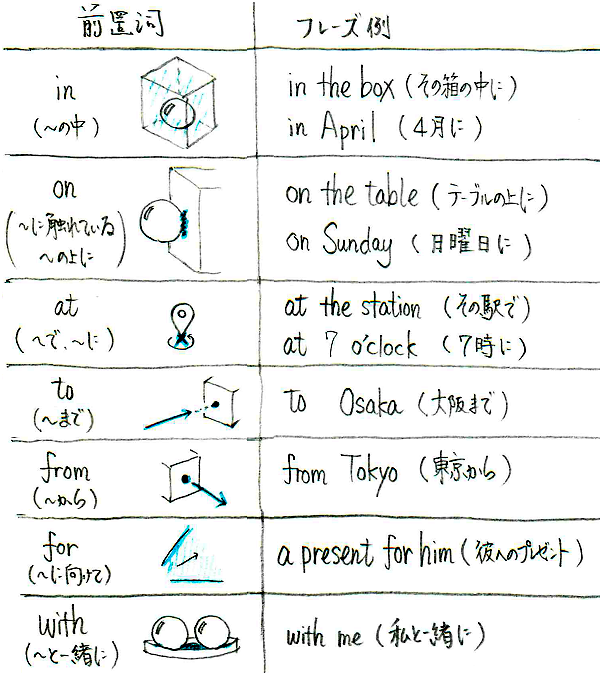 前置詞 フレーズ例
in
(〜の中)
in the box (その箱の中に)
in April (4月に)
on
(〜に触れている
〜の上に)
on the table (テーブルの上に)
on Sunday (日曜日に)
at
(〜で、〜に)
at the station (その駅で)
at 7 o'clock (7時に)
to
(〜まで)
to Osaka (大阪まで)
from
(〜から)
from Tokyo (東京から)
for
(〜に向けて)
a present for him (彼へのプレゼント)
with
(〜と一緒に)
with me (私と一緒に)